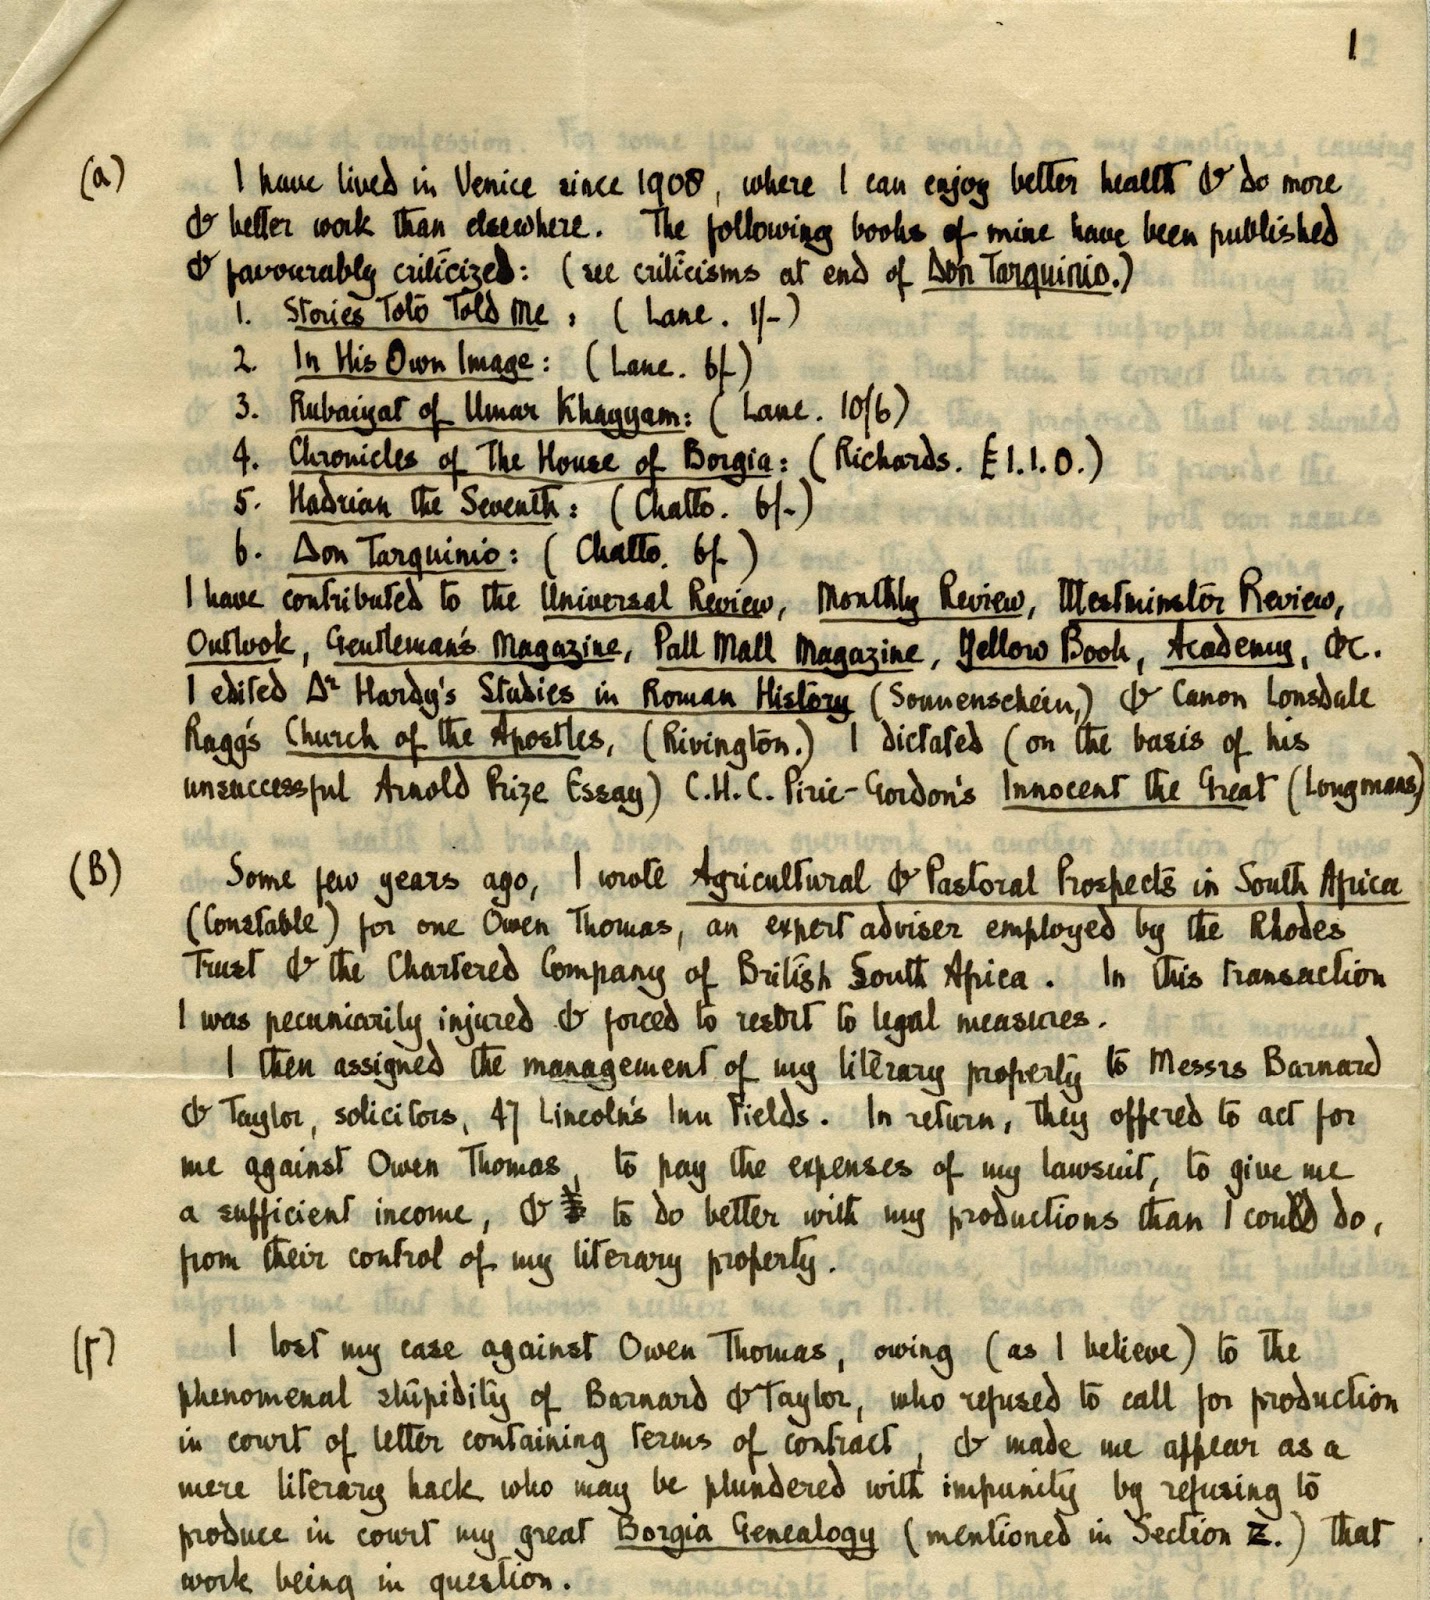 1
(a) I have lived in Venice since 1908, where I can enjoy better health & do more
& better work than elsewhere. The following books of mine have been published
& favourably criticized: (see criticisms at end of Don Tarquinio.)
1. Stories Toto Told Me: (Lane. 1/-)
2. In His Own Image: (Lane. 6/-)
3. Rubaiyat of Umar Khayyam: (Lane. 10/6)
4. Chronicles of The House of Borgia: (Richards. £1.1.0.)
5. Hadrian the Seventh: (Chatto. 6/-)
6. Don Tarquinio: (Chatto. 6/-)
I have contributed to the Universal Review, Monthly Review, Westminster Review,
Outlook, Gentleman's Magazine, Pall Mall Magazine, Yellow Book, Academy, &c.
I edited Dr Hardy's Studies in Roman History (Sonnenschein,) & Canon Lonsdale
Ragg's Church of the Apostles, (Rivington.) I dictated (on the basis of his
unsuccessful Arnold Prize Essay) C.H.C. Pirie-Gordon's Innocent the Great (Longmans)
(B) Some few years ago, I wrote Agricultural & Pastoral Prospects in South Africa
(Constable) for one Owen Thomas, an expert adviser employed by the Rhodes
Trust & the Chartered Company of British South Africa. In this transaction
I was pecuniarily injured & forced to resort to legal measures.
I then assigned the management of my literary property to Messrs Barnard
& Taylor, solicitors, 47 Lincoln's Inn Fields. In return, they offered to act for
me against Owen Thomas, to pay the expenses of my lawsuit, to give me
a sufficient income, & to do better with my productions than I could do,
from their control of my literary property.
(Γ) I lost my case against Owen Thomas, owing (as I believe) to the
phenomenal stupidity of Barnard & Taylor, who refused to call for production
in court of letter containing terms of contract, & made me appear as a
mere literary hack who may be plundered with impunity by refusing to
produce in court my great Borgia Genealogy (mentioned in Section Z.) that
work being in question.